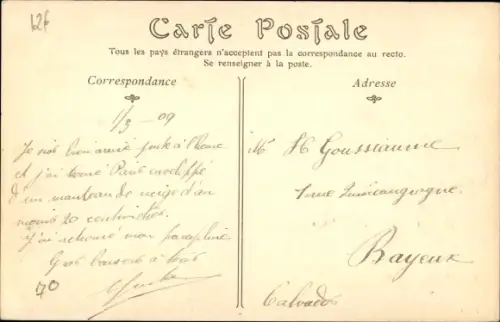 126
Carte Postale
Tous les pays étrangers n'acceptent pas la correspondance au recto.
Se renseigner à la poste.
Correspondance
Adresse
1/3 - 09
Je suis bien arrivé juste à l'heure
et j'ai trouvé Paris enveloppé
d'un manteau de neige d'au
moins 20 centimètres.
J'ai retrouvé mon parapluie
Gros baisers à tous
70
Mr H Goussiaume
1 rue
Bayeux
Calvados